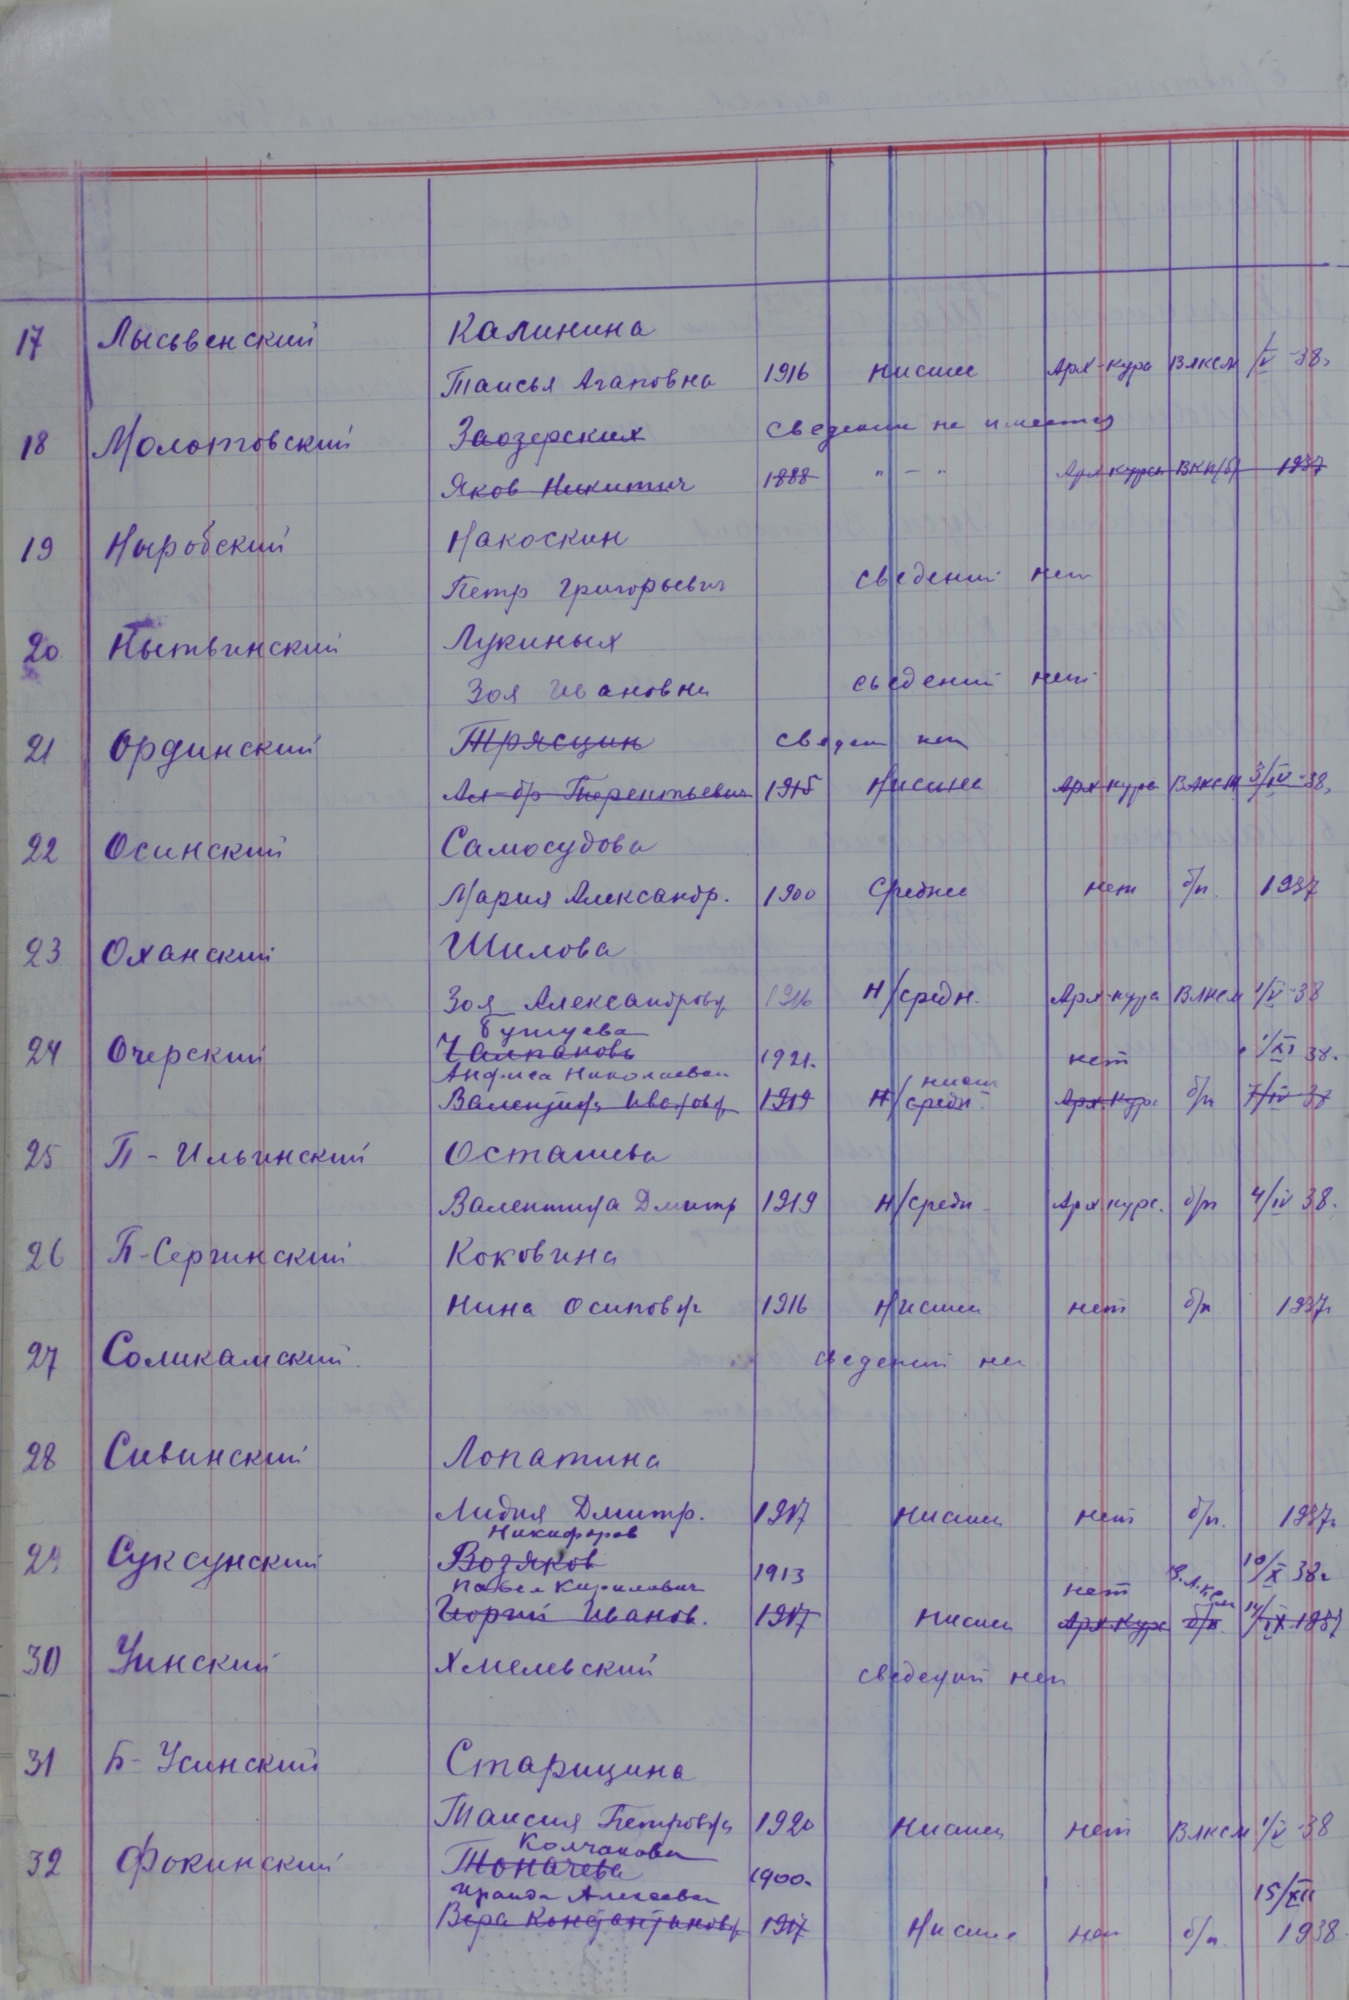 17 Лысьвенский Калинина
Таисья Агаповна 1916 Низшее Арх-курс ВЛКСМ 1/V-38г
18 Молотовский Заозерских сведений не имеется
Яков Никитич 1888 " - " Арх курсы ВКП(б) 1937
19 Ныробский Накоскин
Петр Григорьевич сведений нет
20 Нытвинский Лукиных
Зоя Ивановна сведений нет
21 Ординский Трясцин сведен нет
Ал-др Терентьевич 1915 Низшее Арх курс ВЛКСМ 3/IV-38г
22 Осинский Самосудова
Мария Александр. 1900 Среднее нет б/п. 1937
23 Оханский Шилова
Зоя Александровн 1916 Н/средн. Арх-курс ВЛКСМ 1/V-38
Бушуева
24 Очерский Чалпанова 1921. нет 1/XI 38г.
Анфиса Николаевна низш
Валентина Ивановн 1919 Н/средн. Арх.кур. б/п 7/IV-38
25 П-Ильинский Осташева
Валентина Дмитр 1919 Н/средн Арх.курс. б/п 4/IV 38.
26 П-Сергинский Коковина
Нина Осиповн 1916 Низшее нет б/п 1937г
27 Соликамский сведений нет
28 Сивинский Лопатина
Лидия Дмитр. 1917 Низшее нет б/п. 1937г
Никифоров
29 Суксунский Возяков 1913 нет В.Л.К.См 10/X 38г
Павел Кирилович
Георгий Иванов. 1917 Низшее Арх.Кур б/п. 14/IX 1937
30 Уинский Хмелевский сведений нет
31 Б-Усинский Старицина
Таисия Петровна 1920 Низшее нет ВЛКСМ 1/V-38
Колчанова
32 Фокинский Топачева 1900. 15/XII
Ираида Алексеевна
Вера Константиновн 1917 Низшее нет б/п. 1938.